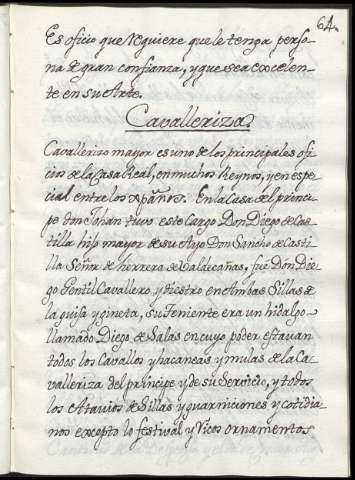 64.
Es oficio que Requiere que le tenga perso-
na de gran confianza, y que sea excelen-
te en su Arte.
Cavalleriza.
Cavallerizo mayor es uno de los principales ofi
cios de la Casa Real, en muchos Reynos, y en espe
cial entre los españoles. En la Casa del princi-
pe don Johan tuvo este cargo Don Diego de Cas-
tilla hijo mayor de su Ayo Don Sancho de Casti-
lla Señor de herrera de Valdecañas, fue Don Die-
go Gentil Cavallero y diestro en Ambas Sillas de
la guisa y gineta, su Teniente era un hidalgo
llamado Diego de Salas en cuyo poder estavan
todos los Cavallos y hacaneas y mulas de la Ca-
valleriza del principe y de su Servicio, y todos
los Atavios de Sillas y guarniciones y cotidia-
nos excepto lo festival y Ricos ornamentos